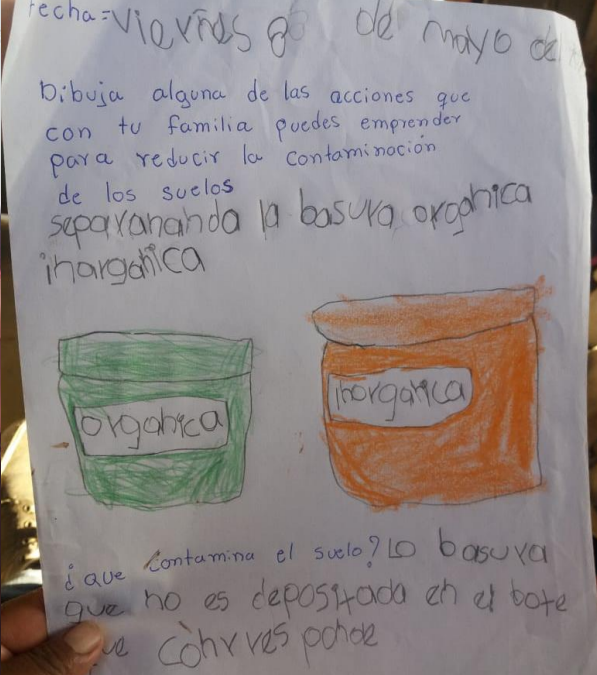 fecha = Viernes 8 de mayo de
Dibuja alguna de las acciones que
con tu familia puedes emprender
para reducir la contaminación
de los suelos
separananda la basura organica
inarganica
organica
inorganica
¿que contamina el suelo? Lo basura
que no es depositada en el bote
que cohrresponde